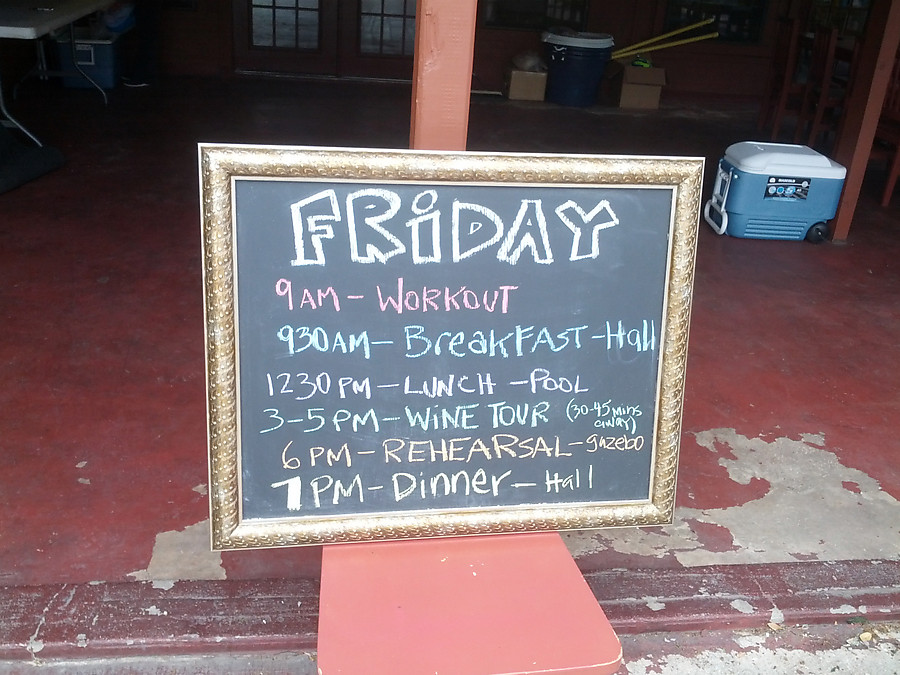 FRiDAY
9AM - WORKOUT
930AM - BreakFAST - Hall
1230PM - LUNCH - POOL
3-5PM - WiNE TOUR (30-45 mins away)
6PM - REHEARSAL - gazebo
7PM - Dinner - Hall